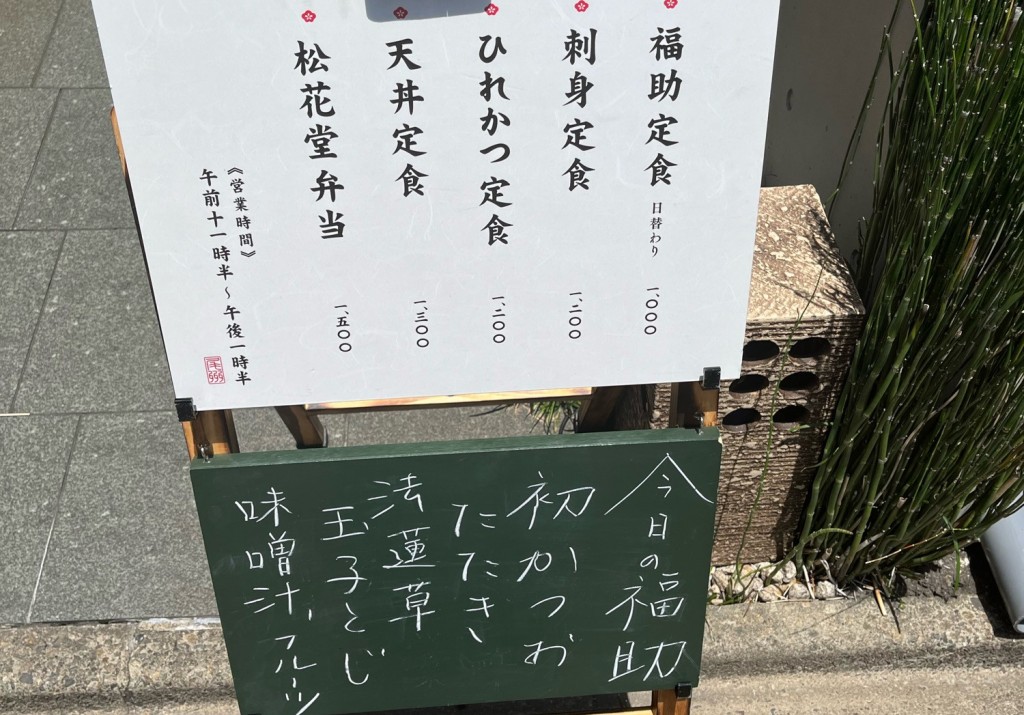 福助定食 日替わり 一、〇〇〇
刺身定食 一、二〇〇
ひれかつ定食 一、二〇〇
天丼定食 一、三〇〇
松花堂弁当 一、五〇〇
《営業時間》
午前十一時半〜午後一時半
今日の福助
初かつお
たたき、
法蓮草
玉子とじ
味噌汁、フルーツ